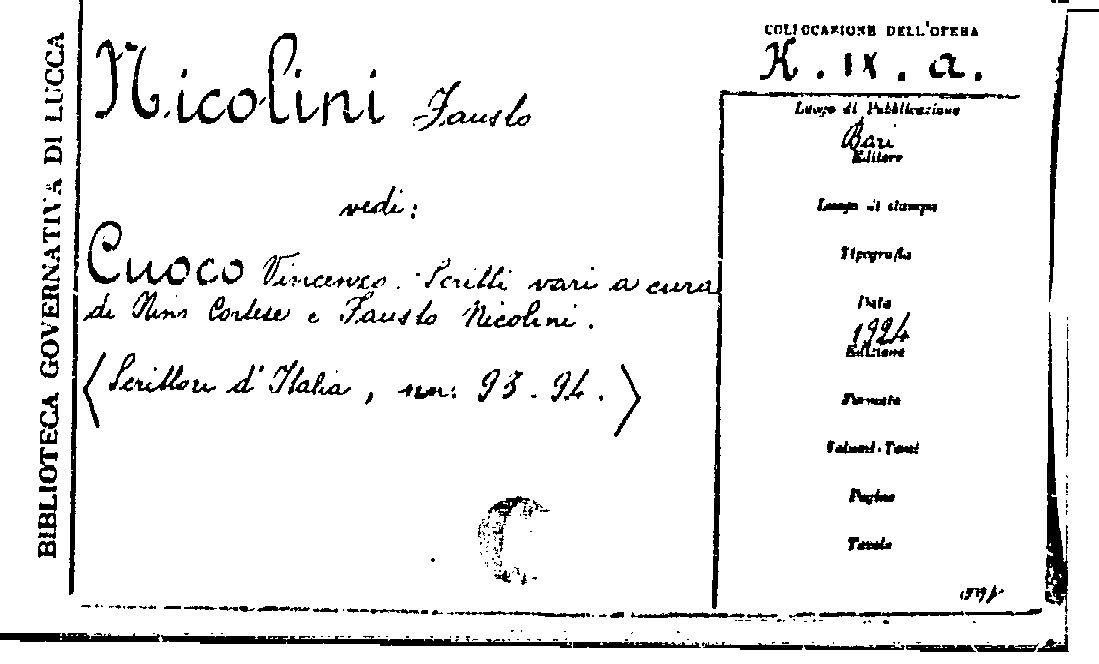 BIBLIOTECA GOVERNATIVA DI LUCCA
Nicolini Fausto
vedi:
Cuoco Vincenzo. Scritti vari a cura
di Nino Cortese e Fausto Nicolini.
〈Scrittori d'Italia, nn: 93-94.〉
C
COLLOCAZIONE DELL'OPERA
K. IX. a.
Luogo di Pubblicazione
Bari
Editore
Luogo di stampa
Tipografia
Data
1924
Edizione
Formato
Volumi-Tomi
Pagine
Tavole